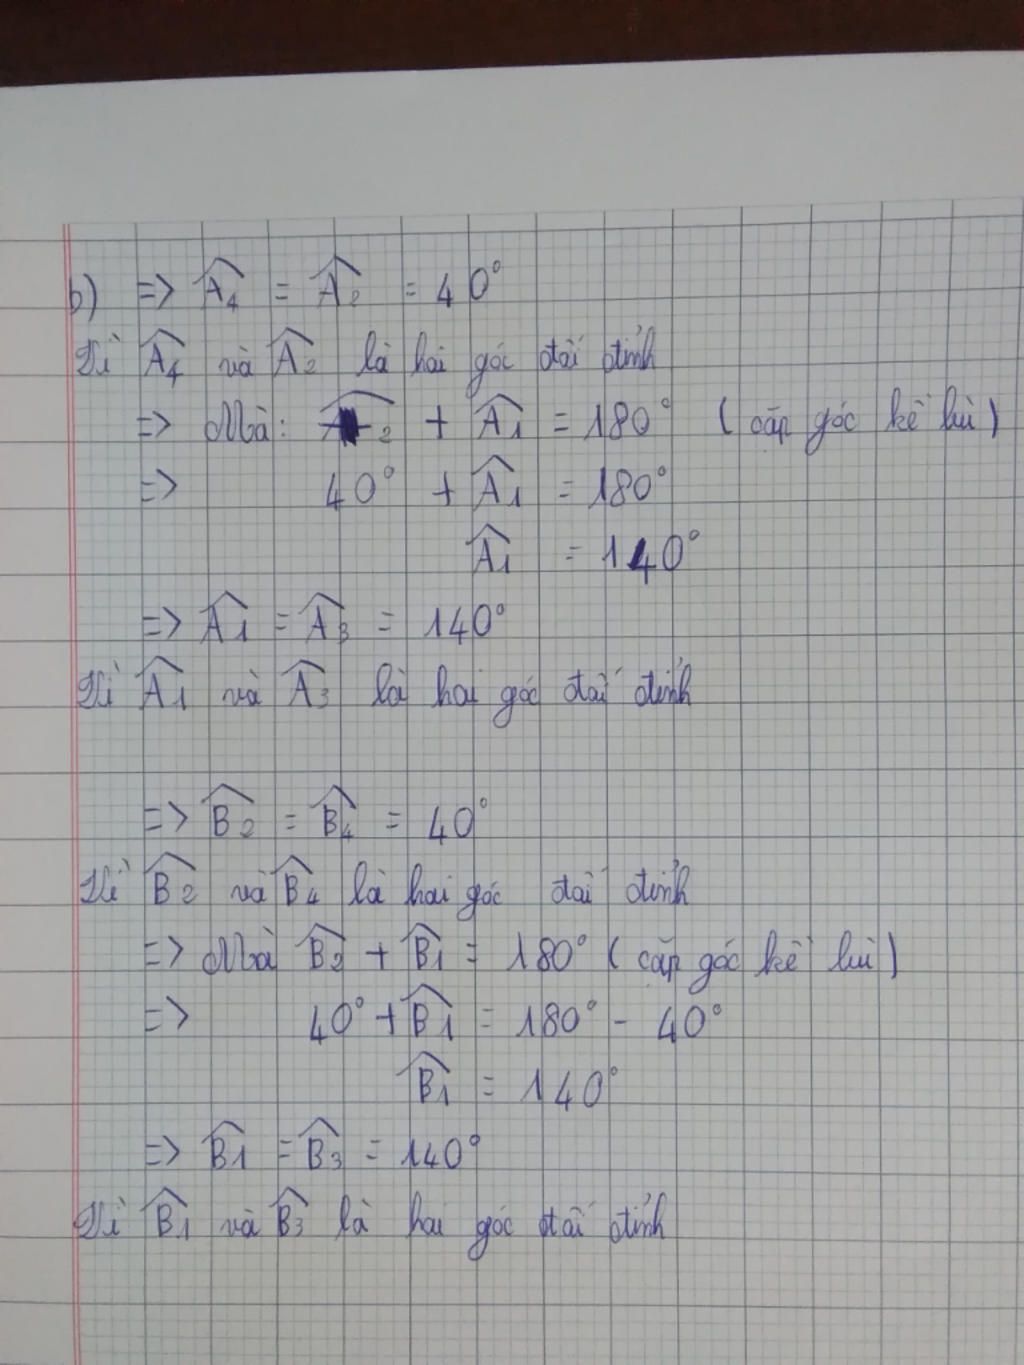 b) => Â₄ = Â₂ = 40°
Vì Â₄ và Â₂ là hai góc đối đỉnh
=> Mà: Â₂ + Â₁ = 180° ( cặp góc kề bù )
=> 40° + Â₁ = 180°
Â₁ = 140°
=> Â₁ = Â₃ = 140°
Vì Â₁ và Â₃ là hai góc đối đỉnh
=> B̂₂ = B̂₄ = 40°
Vì B̂₂ và B̂₄ là hai góc đối đỉnh
=> Mà B̂₂ + B̂₁ = 180° ( cặp góc kề bù )
=> 40° + B̂₁ = 180° - 40°
B̂₁ = 140°
=> B̂₁ = B̂₃ = 140°
Vì B̂₁ và B̂₃ là hai góc đối đỉnh